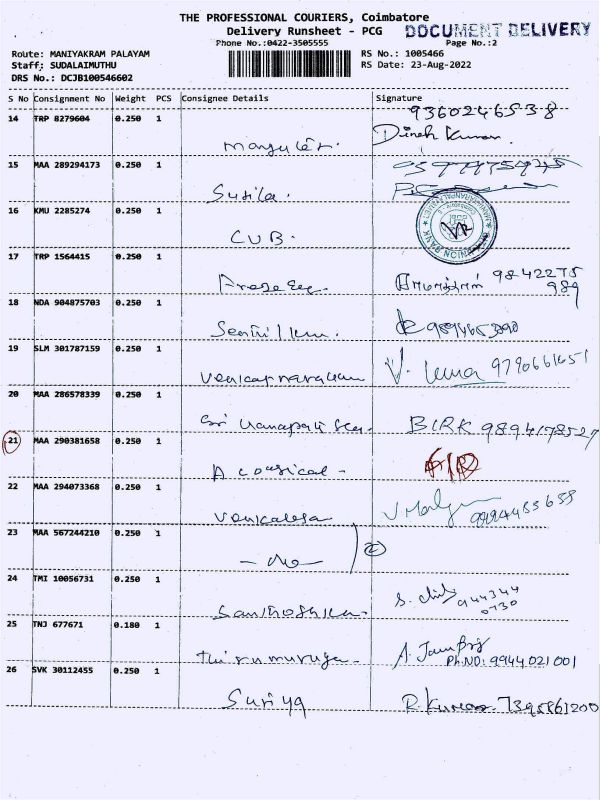 THE PROFESSIONAL COURIERS, Coimbatore
Delivery Runsheet - PCG
DOCUMENT DELIVERY
Phone No.:0422-3505555
Page No.:2
Route: MANIYAKRAM PALAYAM
RS No.: 1005466
Staff: SUDALAIMUTHU
RS Date: 23-Aug-2022
DRS No.: DCJB100546602
S No Consignment No Weight PCS Consignee Details Signature
9360246538
14 TRP 8279604 0.250 1
Dinesh Kumar
15 MAA 289294173 0.250 1
Susila.
16 KMU 2285274 0.250 1
CUB.
UNION BANK
17 TRP 1564415 0.250 1
9842275
989
18 NDA 904875703 0.250 1
Senthil Kum.
19 SLM 301787159 0.250 1
V. Uma 9790661651
20 MAA 286578339 0.250 1
Sri Ganapati
BIRK 9894178527
21 MAA 290381658 0.250 1
22 MAA 294073368 0.250 1
Venkatesa
23 MAA 567244210 0.250 1
- do -
24 TMI 10056731 0.250 1
944344
0730
25 TNJ 677671 0.180 1
Thirumuruga
Ph.NO: 9944021001
26 SVK 30112455 0.250 1
Suriya
R. Kumar 7395861200